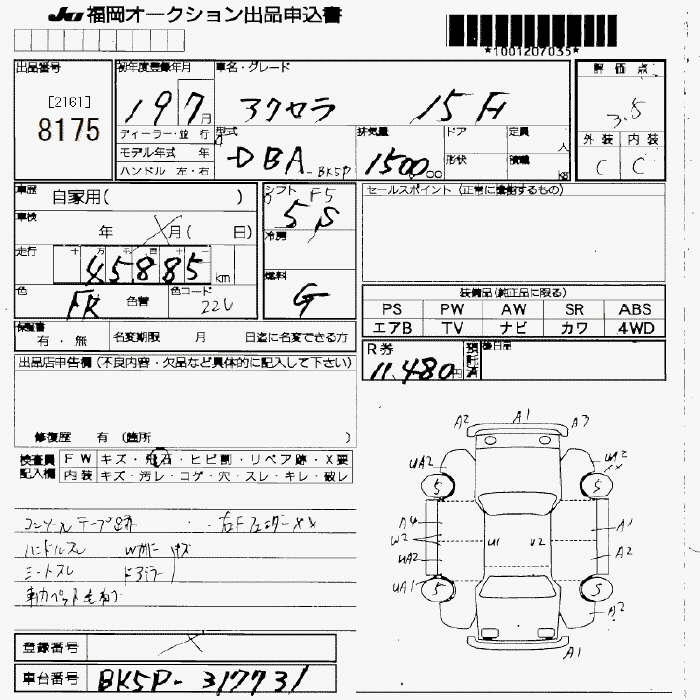 JU 福岡オークション出品申込書
*1001207035*
出品番号
[2161]
8175
初年度登録年月
19 7月
車名・グレード
アクセラ 15F
評価点
3.5
外装 内装
C C
ディーラー・並行
モデル年式 年
ハンドル 左・右
型式
DBA-BK5P
排気量
1500 cc
ドア
定員
人
形状
積載
kg
車歴
自家用( )
車検
年 月( 日)
走行
十 万 千 百 十 一
45885 km
色
色替
色コード
22V
シフト
F5
冷房
燃料
G
セールスポイント (正常に稼働するもの)
装備品(純正品に限る)
PS PW AW SR ABS
エアB TV ナビ カワ 4WD
R券
11,480円
預託済
後日品
保証書
有・無
名変期限 月 日迄に名変できる方
出品店申告欄 (不良内容・欠品など具体的に記入して下さい)
修復歴 有 (箇所 )
検査員記入欄
FW キズ・飛石・ヒビ割・リペア跡・X要
内装 キズ・汚レ・コゲ・穴・スレ・キレ・破レ
コンソールテープ跡 右Fフェンダーxx
ハンドルスレ
シートスレ ドアミラー
A2 A1 A3
UA2 W2 XX
5 5
A4 A1
W2 U1 U2
UA2 A2
UA1 5 5
A2
A1
登録番号
車台番号 BK5P-317731